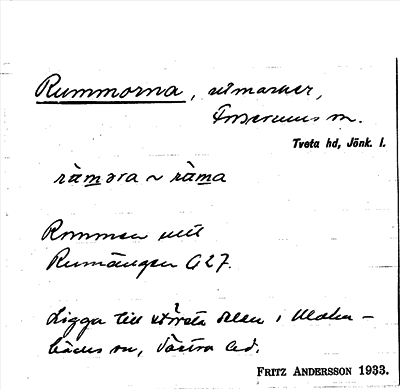 Rummorna, utmarker,
Forserums sn.
Tveta hd, Jönk. l.
ràm̲ɔra ~ ràm̲a
Rommen
Rumängen G27.
Ligga till största delen i
sn, Västra hd.
FRITZ ANDERSSON 1933.